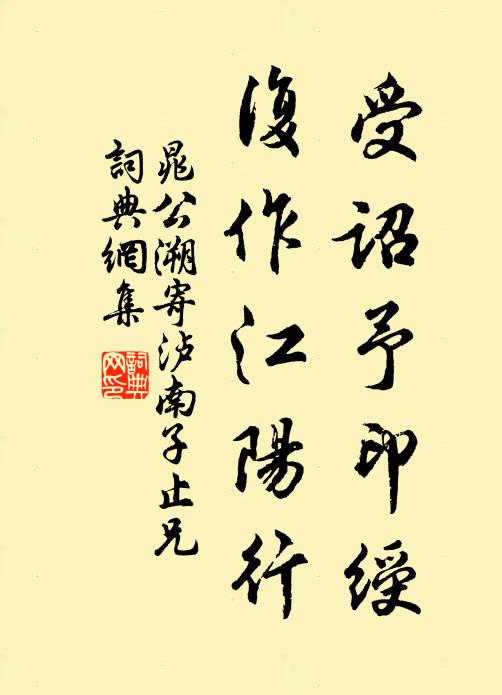 受詔予印綬
復作江陽行
晁公溯寄泸南子止兄
詞典網集
詞典网印